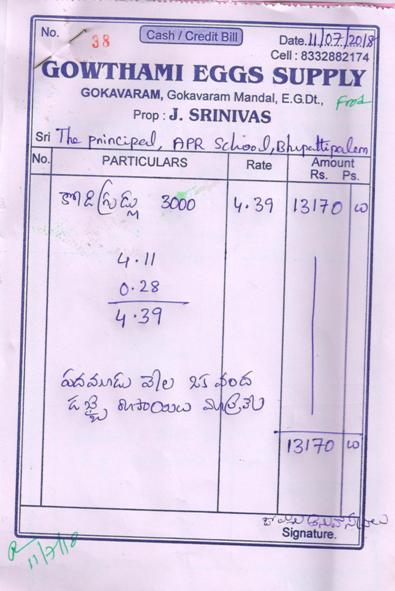 No. 38 Cash / Credit Bill Date. 11/07/2018
Cell : 8332882174
GOWTHAMI EGGS SUPPLY
GOKAVARAM, Gokavaram Mandal, E.G.Dt.,
Prop : J. SRINIVAS
Sri The principal, APR School, Bhupattipalem
No. PARTICULARS Rate Amount
Rs. Ps.
కోడిగ్రుడ్లు 3000 4.39 13170
4.11
0.28
4.39
పదమూడు వేల ఒక వంద
డబ్బై రూపాయలు మాత్రమే
13170
Signature.
11/7/18